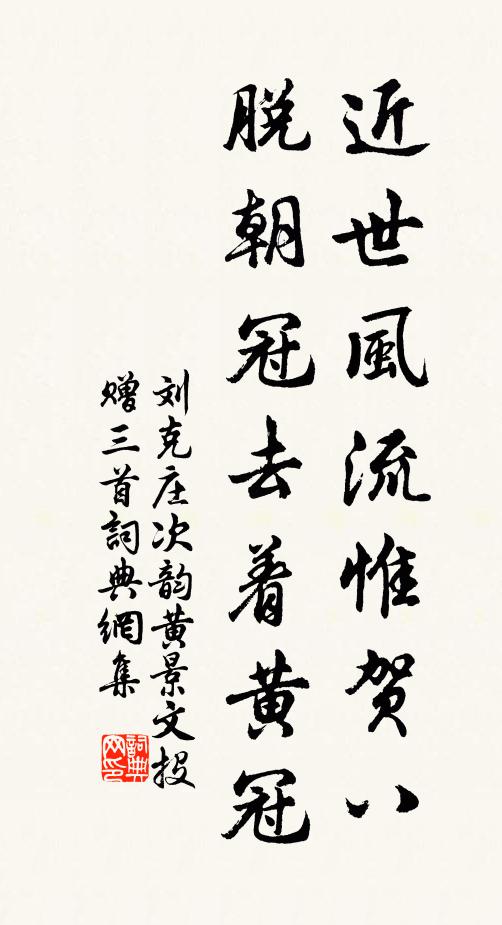 近世風流惟贺八
脱朝冠去着黄冠
刘克庄次韵黄景文投
赠三首詞典網集
詞典网印